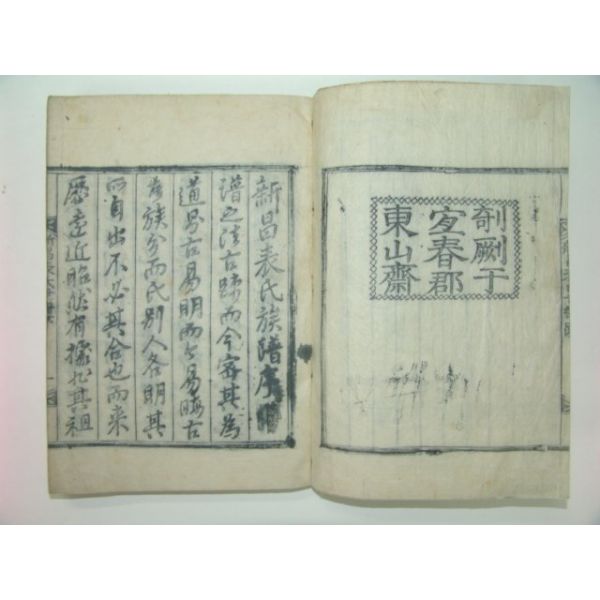 剞劂于
宜春郡
東山齋
新昌表氏族譜序
譜之法古踈而今密其爲
道易古易明而今易晦古
者族分而氏別人各明其
所自出不必其合也而来
歷遠近昭然有據於其祖